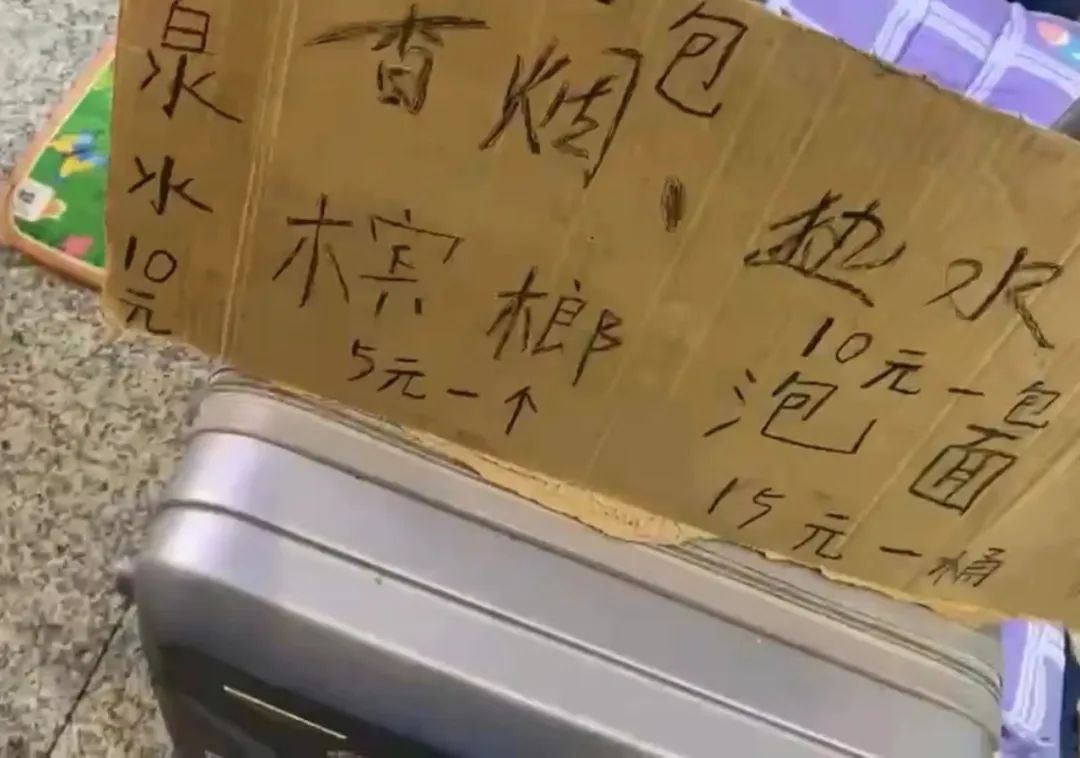 泉水10元
香烟
包
槟榔
5元一个
热水
10元一包
泡面
15元一桶